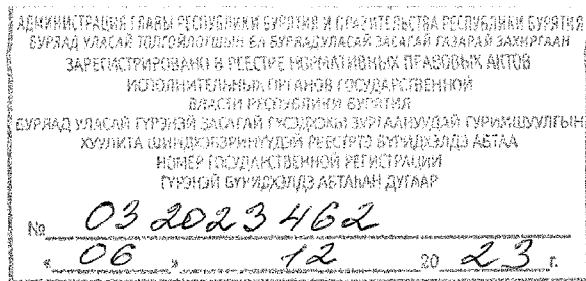 АДМИНИСТРАЦИЯ ГЛАВЫ РЕСПУБЛИКИ БУРЯТИЯ И ПРАВИТЕЛЬСТВА РЕСПУБЛИКИ БУРЯТИЯ
БУРЯАД УЛАСАЙ ТОЛГОЙЛОГШЫН БА БУРЯАД УЛАСАЙ ЗАСАГАЙ ГАЗАРАЙ ЗАХИРГААН
ЗАРЕГИСТРИРОВАНО В РЕЕСТРЕ НОРМАТИВНЫХ ПРАВОВЫХ АКТОВ
ИСПОЛНИТЕЛЬНЫХ ОРГАНОВ ГОСУДАРСТВЕННОЙ
ВЛАСТИ РЕСПУБЛИКИ БУРЯТИЯ
БУРЯАД УЛАСАЙ ГҮРЭНЭЙ ЗАСАГАЙ
ХУУЛИТА РЕЕСТРТЭ БҮРИДХЭЛДЭ АБТАА
НОМЕР ГОСУДАРСТВЕННОЙ РЕГИСТРАЦИИ
ГҮРЭНЭЙ БҮРИДХЭЛДЭ АБТАҺАН ДУГААР
№ 032023462
« 06 » 12 20 23 г.